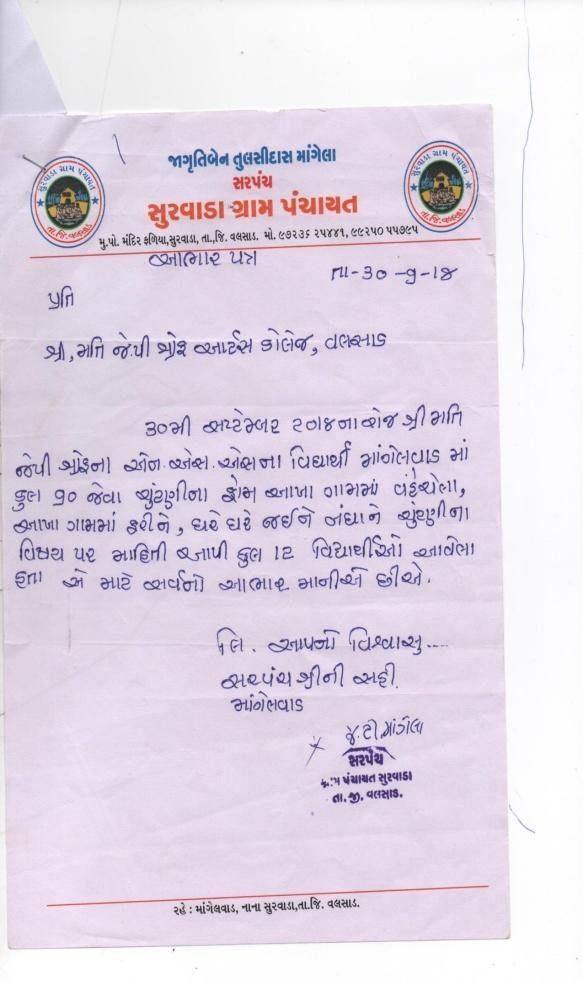 જાગૃતિબેન તુલસીદાસ માંગેલા
સરપંચ
સુરવાડા ગ્રામ પંચાયત
મુ.પો. મંદિર ફળિયા,સુરવાડા, તા.,જિ. વલસાડ. મો. ૯૭૨૩૬ ૨૫૪૪૧, ૯૯૨૫૦ ૫૫૭૯૫
સુરવાડા ગ્રામ પંચાયત
તા.જિ.વલસાડ
સુરવાડા ગ્રામ પંચાયત
તા.જિ.વલસાડ
આભાર પત્ર
તા-૩૦ -૯-૧૪
પ્રતિ
શ્રી, મતિ જે.પી શ્રોફ આર્ટસ કોલેજ, વલસાડ
૩૦મી સપ્ટેમ્બર ૨૦૧૪ના રોજ શ્રી મતિ
જેપી શ્રોફના એન.એસ.એસના વિદ્યાર્થી માંગેલવાડ માં
કુલ ૧૦ જેવા ચુંટણીના ફોમ આખા ગામમાં વહેંચેલા,
આખા ગામમાં ફરીને, ઘરે ઘરે જઈને બંધાને ચુંટણીના
વિષય પર માહિતી આપી કુલ 12 વિદ્યાર્થીઓ આવેલા
હતા એ માટે સર્વનો આભાર માનીએ છીએ.
લિ. આપનો વિશ્વાસુ....
સરપંચ શ્રીની સહી.
માંગેલવાડ
જે.ટી.માંગેલા
સરપંચ
ગ્રામ પંચાયત સુરવાડા
તા.જી. વલસાડ.
રહે : માંગેલવાડ, નાના સુરવાડા,તા.જિ. વલસાડ.